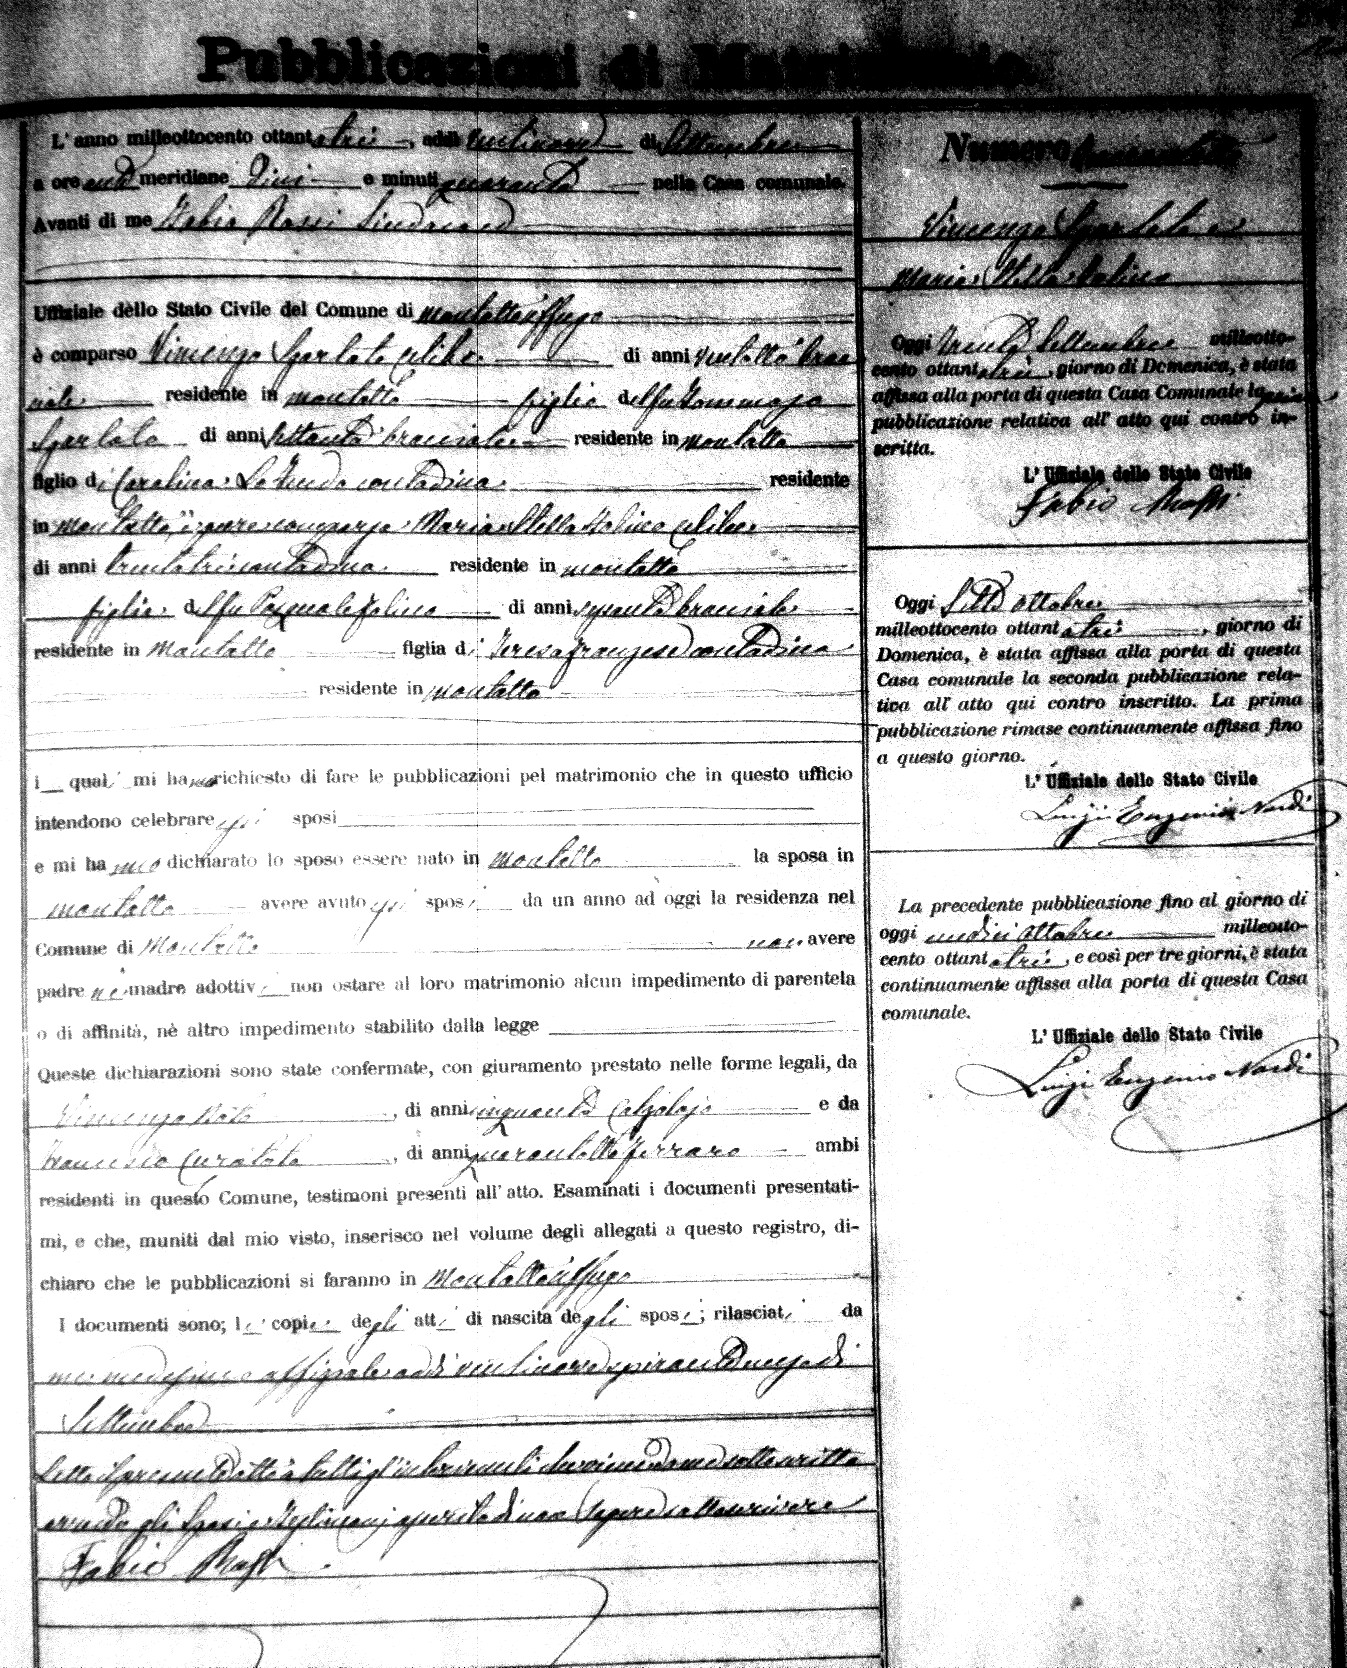 Pubblicazioni di Matrimonio.
L'anno milleottocento ottantatrè, addì ventinove di Settembre
a ore anti meridiane Dieci e minuti quaranta nella Casa comunale.
Avanti di me Fabio Rossi Sindaco
Uffiziale dello Stato Civile del Comune di Montalto Uffugo
è comparso Vincenzo Sparlato celibe di anni ventotto brac
ciale residente in Montalto figlio del fu Tommaso
Sparlato di anni settanta bracciale residente in Montalto
figlio di Carolina La residente
in Montalto, è pure comparsa Maria Stella celibe
di anni trentatrè contadina residente in Montalto
figlia del fu Pasquale di anni bracciale
residente in Montalto figlia di Teresa Franzese contadina
residente in Montalto
i quali mi hanno richiesto di fare le pubblicazioni pel matrimonio che in questo ufficio
intendono celebrare essi sposi
e mi hanno dichiarato lo sposo essere nato in Montalto la sposa in
Montalto avere avuto essi sposi da un anno ad oggi la residenza nel
Comune di Montalto non avere
padre nè madre adottivi non ostare al loro matrimonio alcun impedimento di parentela
o di affinità, nè altro impedimento stabilito dalla legge
Queste dichiarazioni sono state confermate, con giuramento prestato nelle forme legali, da
Vincenzo , di anni cinquanta Calzolajo e da
Francesco Curatolo, di anni quarantotto Ferraro ambi
residenti in questo Comune, testimoni presenti all'atto. Esaminati i documenti presentati-
mi, e che, muniti dal mio visto, inserisco nel volume degli allegati a questo registro, di-
chiaro che le pubblicazioni si faranno in Montalto Uffugo
I documenti sono; le copie degli atti di nascita degli sposi; rilasciati da
me medesimo uffiziale addì ventinove spirante mese di
Settembre
Letto il presente atto a tutti gl'intervenuti da me sottoscritto
avendo gli Sposi e Testimoni asserito di non sapere sottoscrivere
Fabio Rossi
Numero
Vincenzo Sparlato e
Maria Stella
Oggi trenta Settembre milleotto-
cento ottantatrè, giorno di Domenica, è stata
affissa alla porta di questa Casa Comunale la prima
pubblicazione relativa all'atto qui contro in-
scritta.
L'Uffiziale dello Stato Civile
Fabio Rossi
Oggi Sette Ottobre
milleottocento ottantatrè, giorno di
Domenica, è stata affissa alla porta di questa
Casa comunale la seconda pubblicazione rela-
tiva all'atto qui contro inscritto. La prima
pubblicazione rimase continuamente affissa fino
a questo giorno.
L'Uffiziale dello Stato Civile
Luigi Eugenio Nardi
La precedente pubblicazione fino al giorno di
oggi undici Ottobre milleotto-
cento ottantatrè, e così per tre giorni, è stata
continuamente affissa alla porta di questa Casa
comunale.
L'Uffiziale dello Stato Civile
Luigi Eugenio Nardi